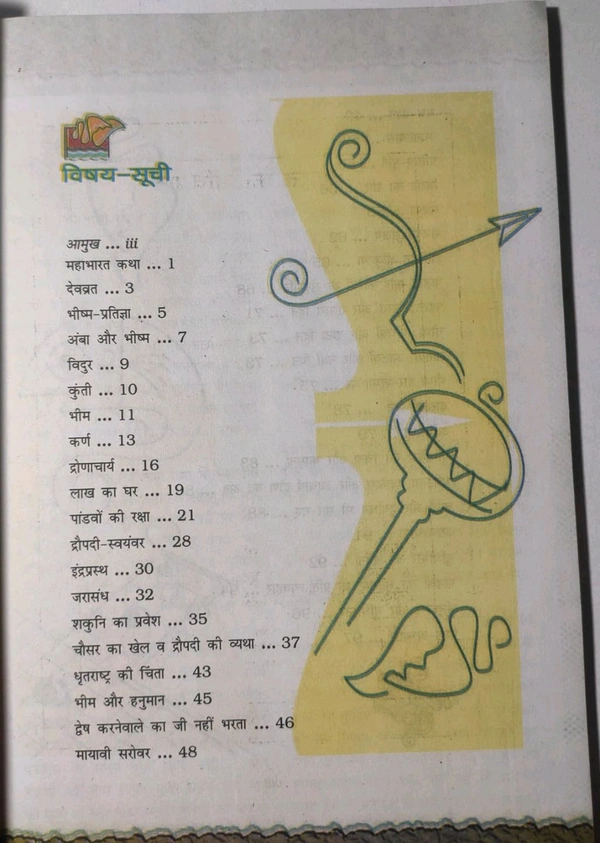 विषय-सूची
आमुख ... iii
महाभारत कथा ... 1
देवव्रत ... 3
भीष्म-प्रतिज्ञा ... 5
अंबा और भीष्म ... 7
विदुर ... 9
कुंती ... 10
भीम ... 11
कर्ण ... 13
द्रोणाचार्य ... 16
लाख का घर ... 19
पांडवों की रक्षा ... 21
द्रौपदी-स्वयंवर ... 28
इंद्रप्रस्थ ... 30
जरासंध ... 32
शकुनि का प्रवेश ... 35
चौसर का खेल व द्रौपदी की व्यथा ... 37
धृतराष्ट्र की चिंता ... 43
भीम और हनुमान ... 45
द्वेष करनेवाले का जी नहीं भरता ... 46
मायावी सरोवर ... 48